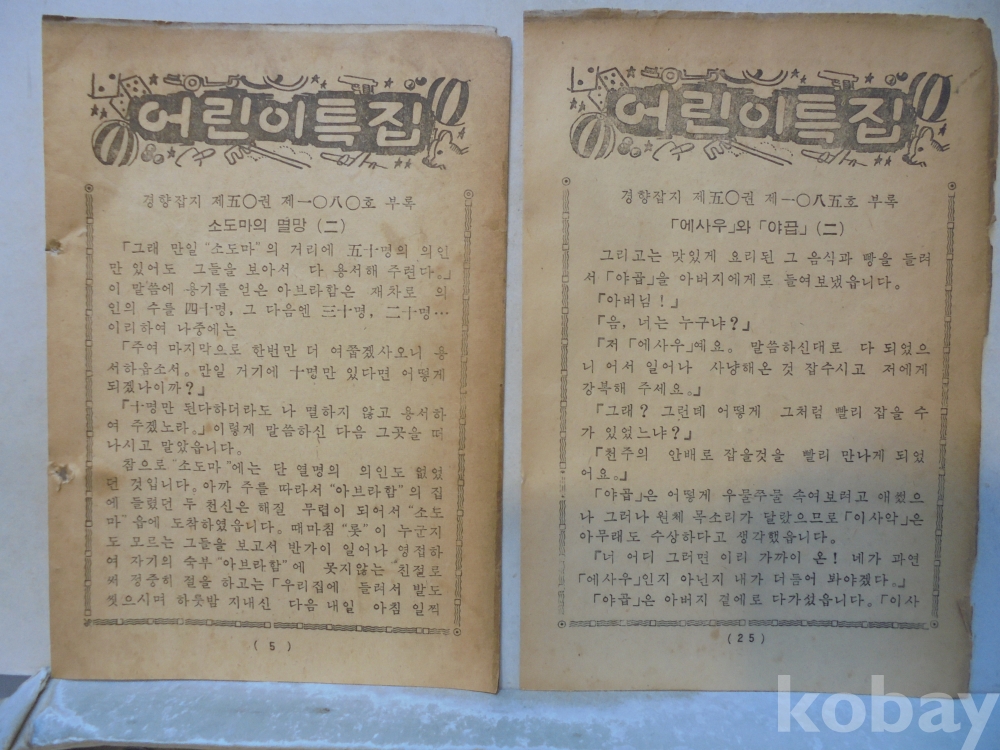 어린이특집
경향잡지 제五〇권 제一〇八〇호 부록
소도마의 멸망 (二)
「그래 만일 "소도마"의 거리에 五十명의 의인
만 있어도 그들을 보아서 다 용서해 주련다。」
이 말씀에 용기를 얻은 아브라함은 재차로 의
인의 수를 四十명, 그 다음엔 三十명, 二十명…
이리하여 나중에는
「주여 마지막으로 한번만 더 여쭙겠사오니 용
서하옵소서. 만일 거기에 十명만 있다면 어떻게
되겠나이까?」
「十명만 된다하더라도 나 멸하지 않고 용서하
여 주겠노라。」이렇게 말씀하신 다음 그곳을 떠
나시고 말았읍니다.
참으로 "소도마"에는 단 열명의 의인도 없었
던 것입니다. 아까 주를 따라서 "아브라함"의 집
에 들렸던 두 천신은 해질 무렵이 되어서 "소도
마"읍에 도착하였읍니다. 때마침 "롯"이 누군지
도 모르는 그들을 보고서 반가이 일어나 영접하
여 자기의 숙부 "아브라함"에 못지않는 친절로
써 정중히 절을 하고는 「우리집에 들러서 발도
씻으시며 하룻밤 지내신 다음 내일 아침 일찍
( 5 )
어린이특집
경향잡지 제五〇권 제一〇八五호 부록
「에사우」와 「야곱」 (二)
그리고는 맛있게 요리된 그 음식과 빵을 들려
서 「야곱」을 아버지에게로 들여보냈읍니다.
『아버님!』
『음, 너는 누구냐?』
『저 「에사우」예요。 말씀하신대로 다 되었으
니 어서 일어나 사냥해온 것 잡수시고 저에게
강복해 주세요。』
『그래? 그런데 어떻게 그처럼 빨리 잡을 수
가 있었느냐?』
『천주의 안배로 잡을것을 빨리 만나게 되었
어요。』
「야곱」은 어떻게 우물주물 속여보려고 애썼으
나 그러나 원체 목소리가 달랐으므로 「이사악」은
아무래도 수상하다고 생각했읍니다.
『너 어디 그러면 이리 가까이 온! 네가 과연
「에사우」인지 아닌지 내가 더듬어 봐야겠다。』
「야곱」은 아버지 곁에로 다가섰읍니다. 「이사
( 25 )
kobay